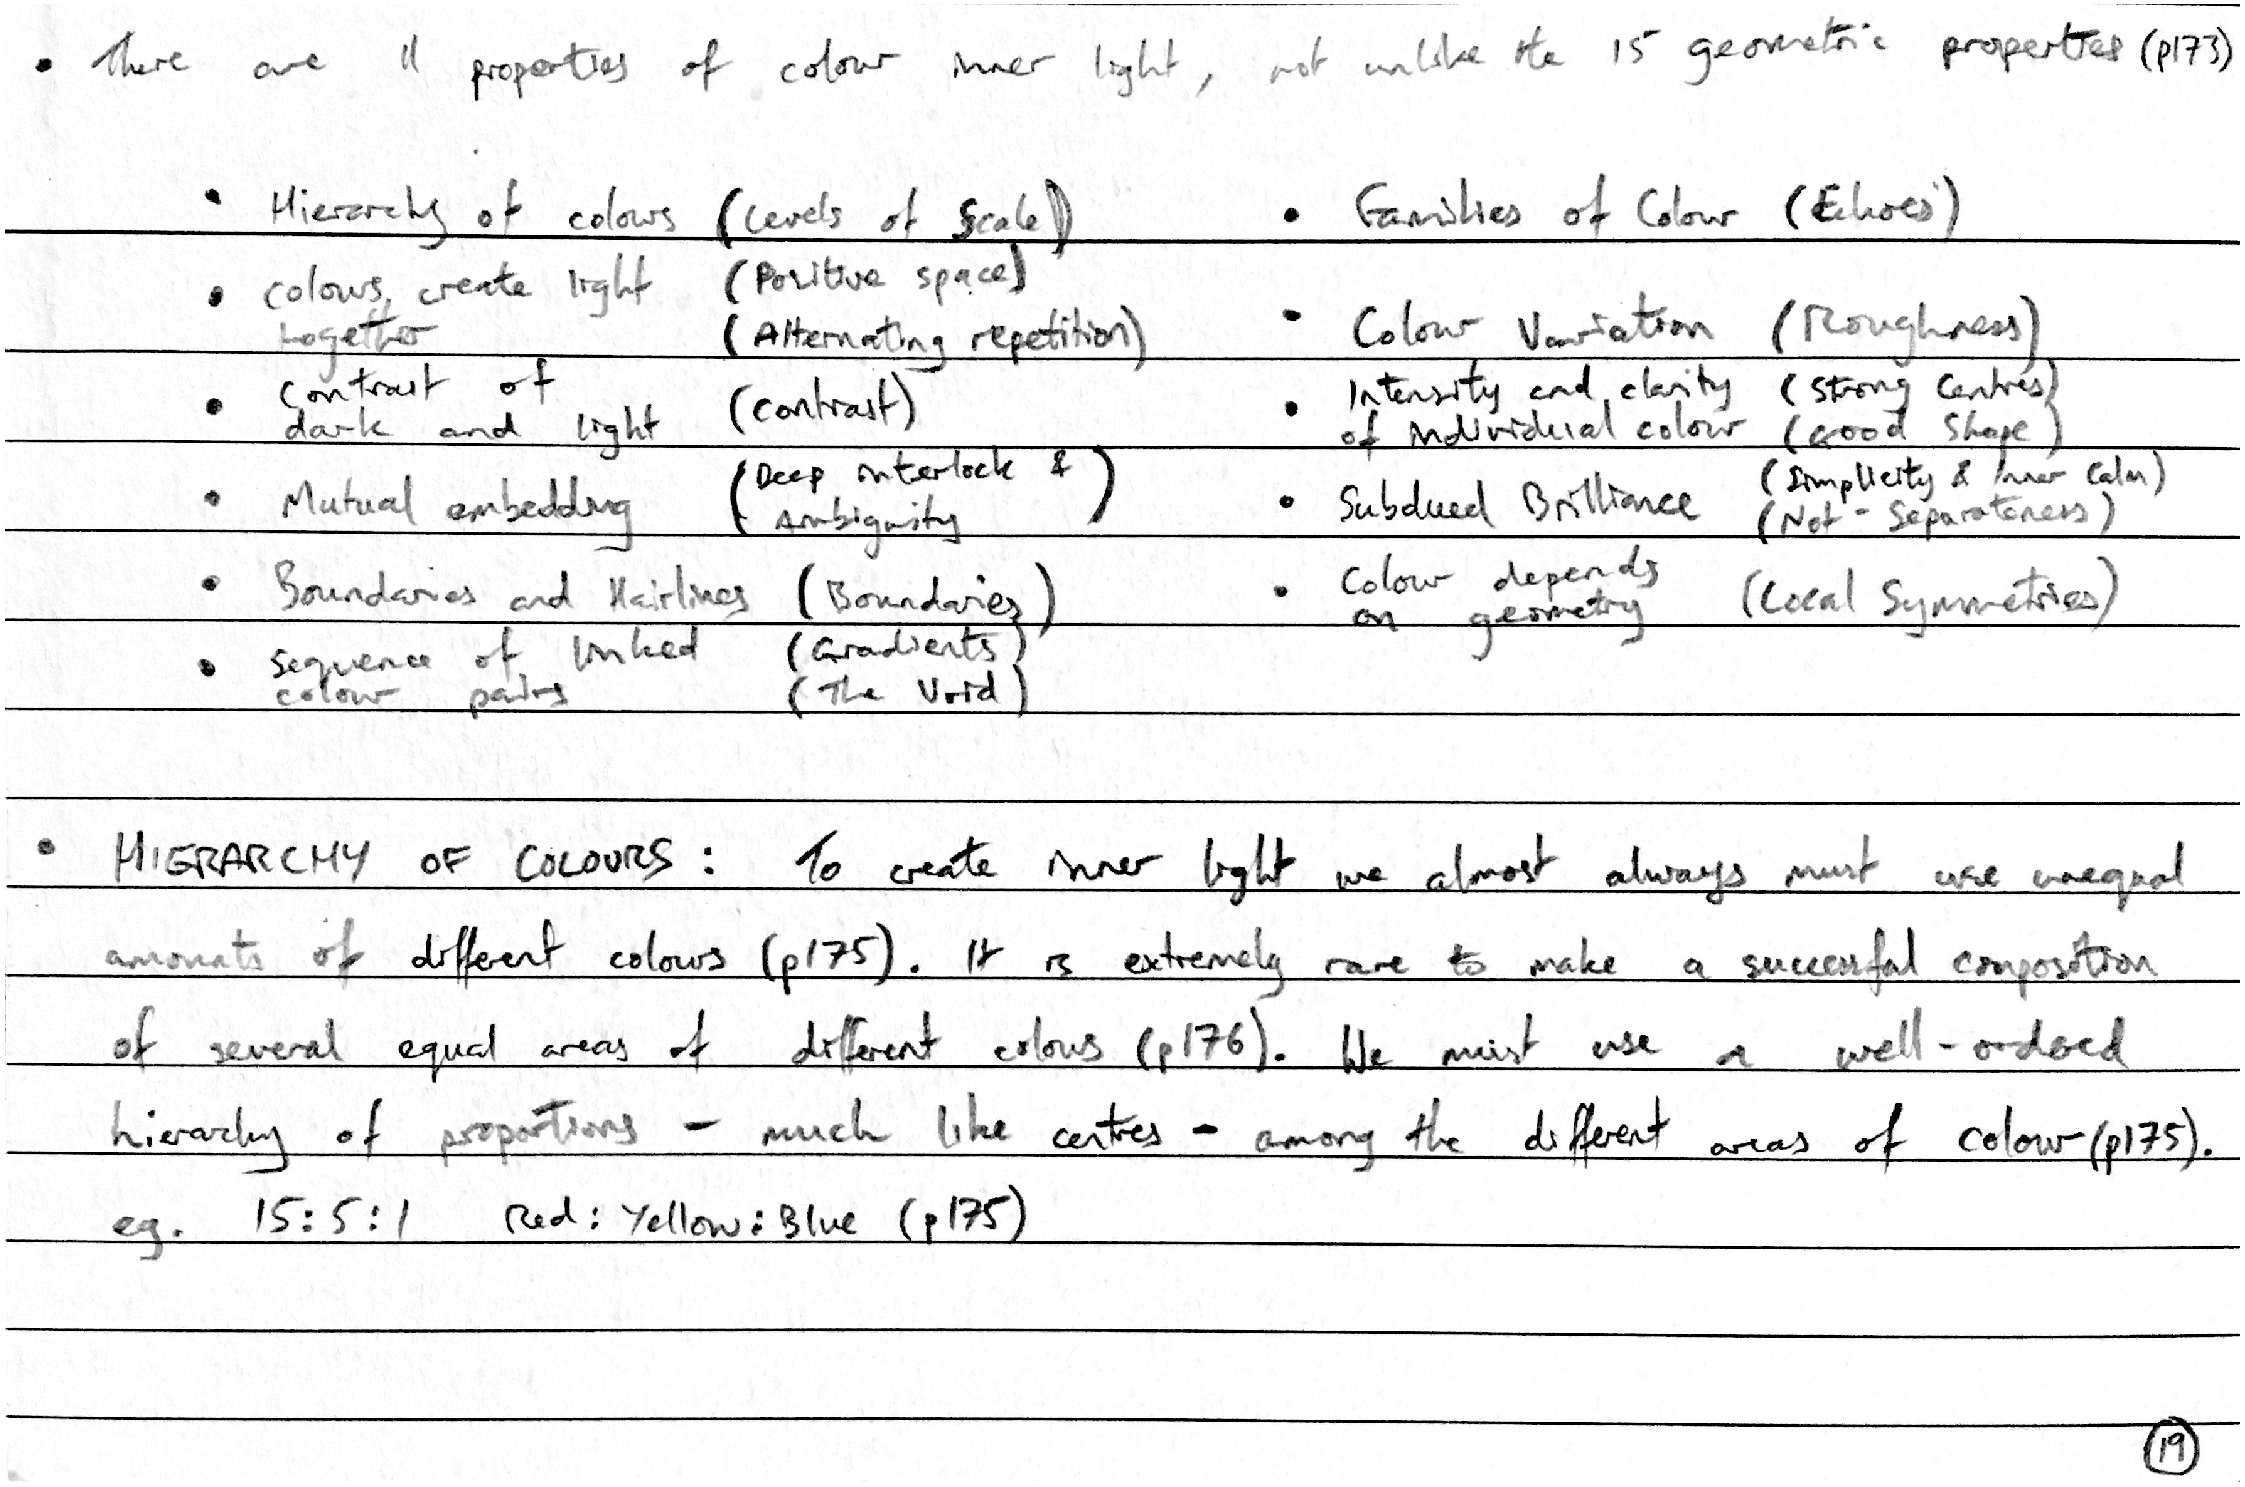 • There are 11 properties of colour inner light, not unlike the 15 geometric properties (p173)
• Hierarchy of colours (Levels of Scale)
• colours create light together (Positive space) (Alternating repetition)
• Contrast of dark and light (contrast)
• Mutual embedding (Deep interlock & Ambiguity)
• Boundaries and Hairlines (Boundaries)
• sequence of linked colour pairs (Gradients) (The Void)
• Families of Colour (Echoes)
• Colour Variation (Roughness)
• Intensity and clarity of individual colour (Strong Centres) (Good Shape)
• Subdued Brilliance (Simplicity & Inner Calm) (Not-Separateness)
• Colour depends on geometry (Local Symmetries)
• HIERARCHY OF COLOURS: To create inner light we almost always must use unequal
amounts of different colours (p175). It is extremely rare to make a successful composition
of several equal areas of different colours (p176). We must use a well-ordered
hierarchy of proportions - much like centres - among the different areas of colour (p175).
eg. 15:5:1 Red: Yellow: Blue (p175)
19